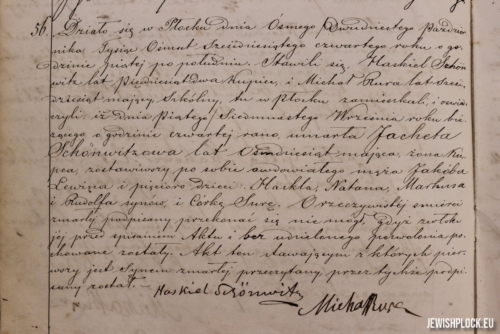 56. Działo się w Płocku dnia Osmego /Dwudziestego/ Paździer
nika Tysiąc Osmset Sześćdziesiątego czwartego roku o go
dzinie piątej po południu. Stawili się, Haskiel Schön
witz lat Piędziesiąt dwa Kupiec, i Michał Rura lat Sześć
dziesiąt mający Szkólny, tu w Płocku zamieszkali, i oświad
czyli: iż dnia Piątego /Siedmnastego/ Września roku bie
żącego o godzinie czwartej rano umarła Jacheta
Schönwitzowa lat Osmdziesiąt mająca, żona Ku
pca, zostawiwszy po sobie owdowiałego męża Jakóba
Lewina i pięcioro dzieci: Haskla, Natana, Markusa
i Rudolfa synów, i Córkę Surę. O rzeczywistej śmierci
zmarłej podpisany przekonać się nie mógł, gdyż zwłoki
jej przed spisaniem Aktu i bez udzielonego pozwolenia po
chowane zostały. Akt ten stawającym z których pier
wszy jest Synem zmarłej przeczytany, przez tychże podpi
sany został. —
Haskiel Schönwitz
Michał Rura
JEWISHPLOCK.EU